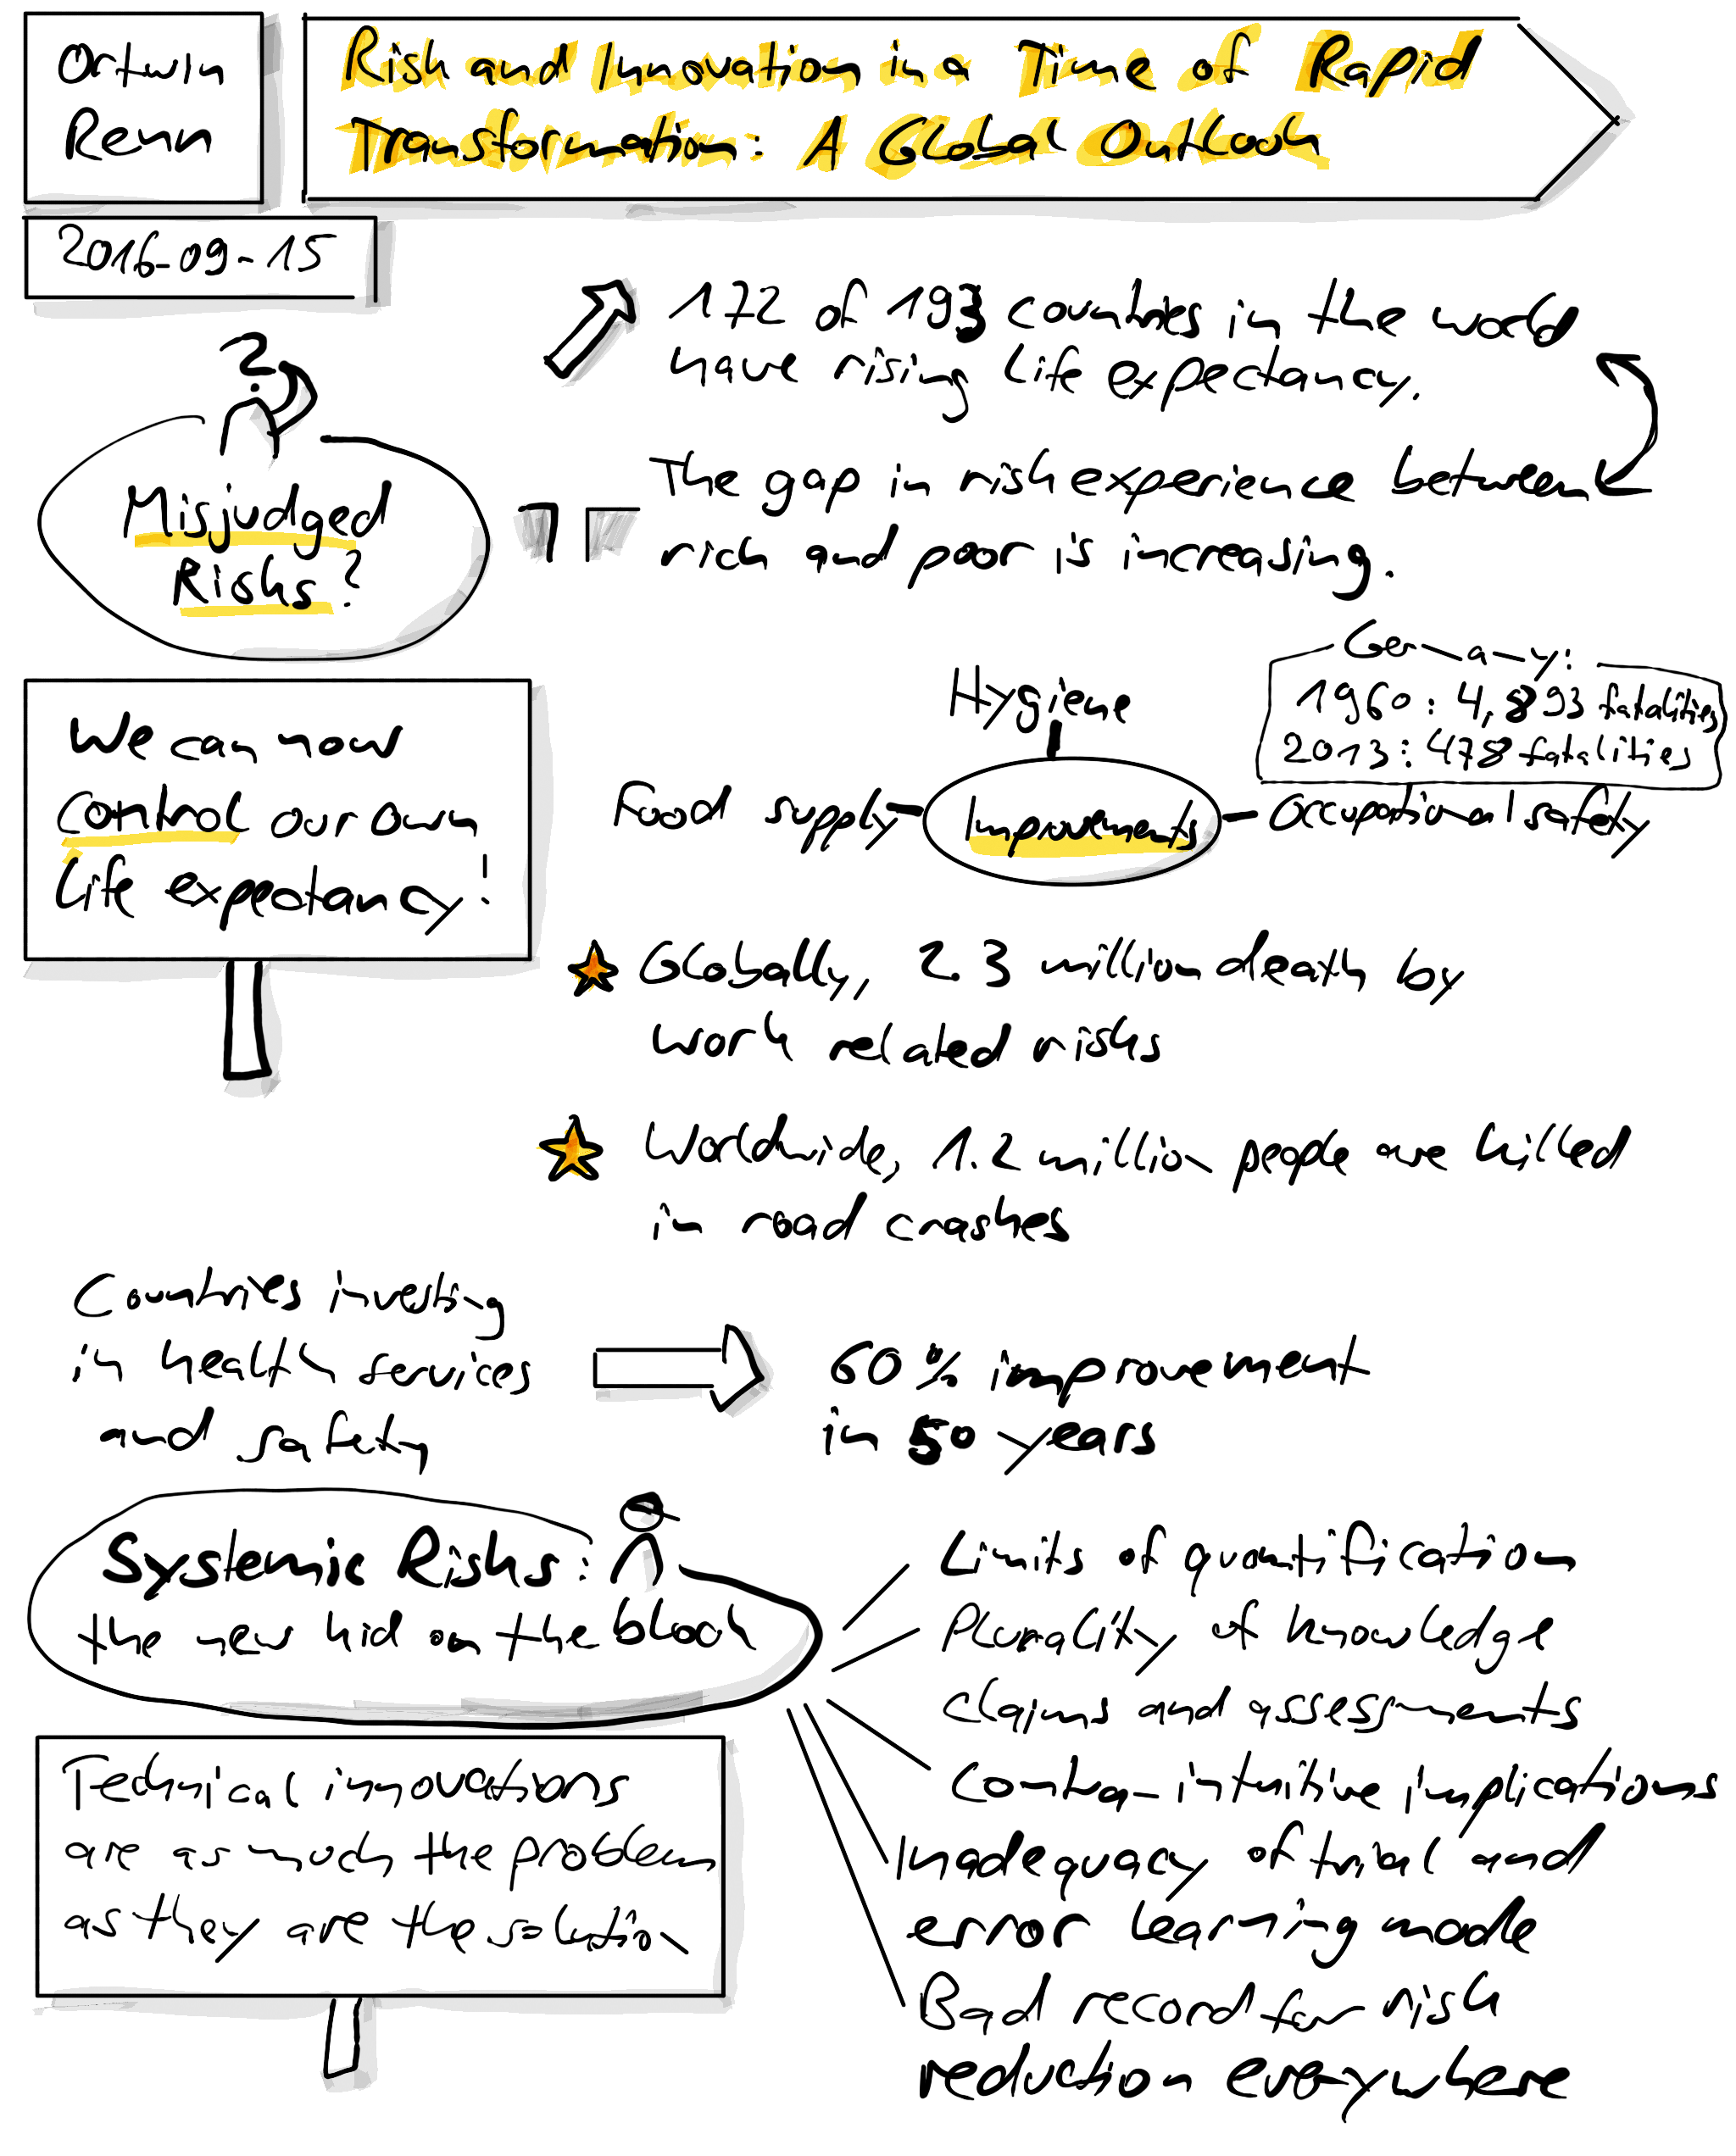 Ortwin
Renn
Risk and Innovation in a Time of Rapid
Transformation: A Global Outlook
2016-09-15
?
172 of 193 countries in the world
have rising life expectancy.
Misjudged
Risks?
The gap in risk experience between
rich and poor is increasing.
We can now
control our own
life expectancy!
Hygiene
Germany:
1960: 4,893 fatalities
2013: 478 fatalities
Food supply
Improvements
Occupational safety
Globally, 2.3 million death by
work related risks
Worldwide, 1.2 million people are killed
in road crashes
Countries investing
in health services
and safety
60% improvement
in 50 years
Systemic Risks:
the new kid on the block
Limits of quantification
Plurality of knowledge
claims and assessments
Contra-intuitive implications
Inadequacy of trial and
error learning mode
Bad record for risk
reduction everywhere
Technical innovations
are as much the problem
as they are the solution